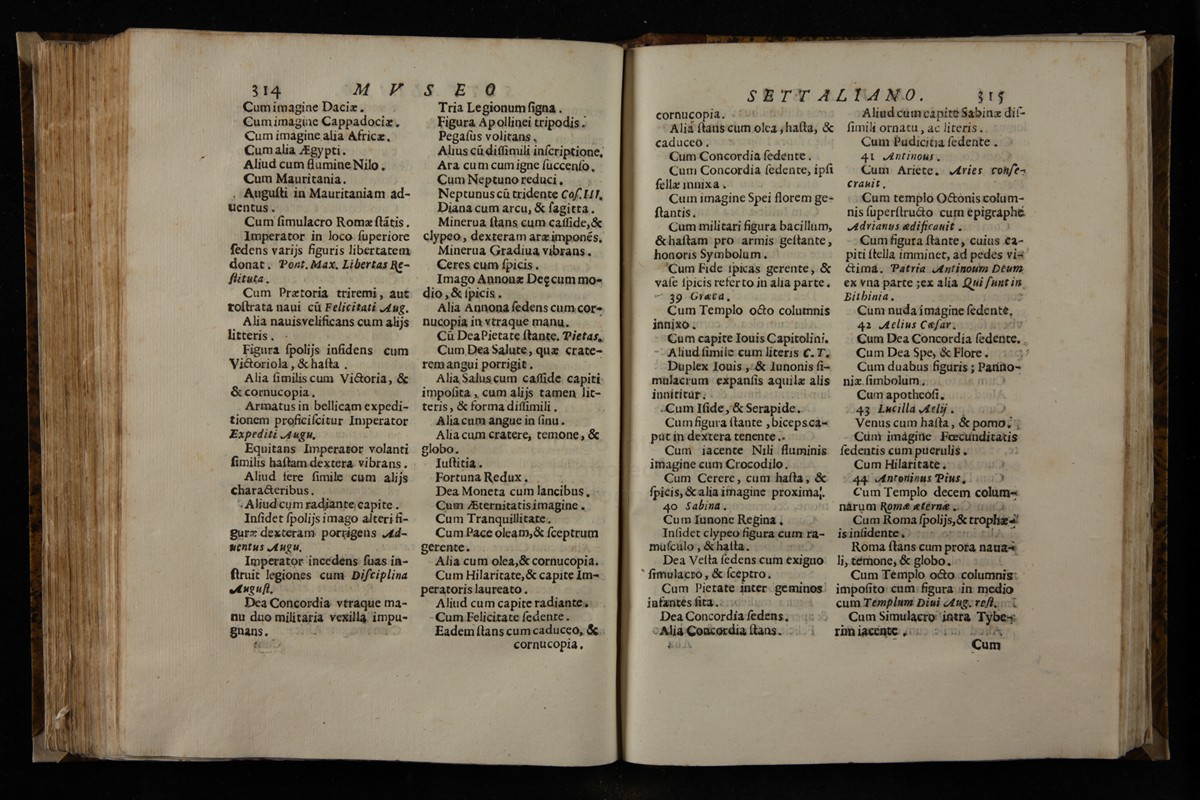 314 MVSEO
Cum imagine Daciæ.
Cum imagine Cappadociæ.
Cum imagine alia Africæ.
Cum alia Ægypti.
Aliud cum flumine Nilo.
Cum Mauritania.
Auguſti in Mauritaniam ad-
uentus.
Cum ſimulacro Romæ ſtãtis.
Imperator in loco ſuperiore
ſedens varijs figuris libertatem
donat. Pont. Max. Libertas Re-
ſtituta.
Cum Prætoria triremi, aut
roſtrata naui cũ Felicitati Aug.
Alia nauis veliſicans cum alijs
litteris.
Figura ſpolijs inſidens cum
Victoriola, & haſta.
Alia ſimilis cum Victoria, &
& cornucopia.
Armatus in bellicam expedi-
tionem proficiſcitur Imperator
Expediti Augu.
Equitans Imperator volanti
ſimilis haſtam dextera vibrans.
Aliud fere ſimile cum alijs
characteribus.
Aliud cum radiante capite.
Inſidet ſpolijs imago alteri fi-
guræ dexteram porrigens Ad-
uentus Augu.
Imperator incedens ſuas in-
ſtruit legiones cum Diſciplina
Auguſt.
Dea Concordia vtraque ma-
nu duo militaria vexilla impu-
gnans.
Tria Legionum ſigna.
Figura Apollinei tripodis.
Pegaſus volitans.
Alius cũ diſſimili inſcriptione.
Ara cum cum igne ſuccenſo.
Cum Neptuno reduci.
Neptunus cũ tridente Coſ. III.
Diana cum arcu, & ſagitta.
Minerua ſtans cum caſſide, &
clypeo, dexteram aræ imponẽs.
Minerua Gradiua vibrans.
Ceres cum ſpicis.
Imago Annonæ Deę cum mo-
dio, & ſpicis.
Alia Annona ſedens cum cor-
nucopia in vtraque manu.
Cũ Dea Pietate ſtante. Pietas.
Cum Dea Salute, quæ crate-
rem angui porrigit.
Alia Salus cum caſſide capiti
impoſita, cum alijs tamen lit-
teris, & forma diſſimili.
Alia cum angue in ſinu.
Alia cum cratere, temone, &
globo.
Iuſtitia.
Fortuna Redux.
Dea Moneta cum lancibus.
Cum Æternitatis imagine.
Cum Tranquillitate.
Cum Pace oleam, & ſceptrum
gerente.
Alia cum olea, & cornucopia.
Cum Hilaritate, & capite Im-
peratoris laureato.
Aliud cum capite radiante.
Cum Felicitate ſedente.
Eadem ſtans cum caduceo, &
cornucopia.
SETTALIANO. 315
cornucopia.
Alia ſtans cum olea, haſta, &
caduceo.
Cum Concordia ſedente.
Cum Concordia ſedente, ipſi
ſellæ innixa.
Cum imagine Spei florem ge-
ſtantis.
Cum militari figura bacillum,
& haſtam pro armis geſtante,
honoris Symbolum.
Cum Fide ſpicas gerente, &
vaſe ſpicis referto in alia parte.
39 Græca.
Cum Templo octo columnis
innixo.
Cum capite Iouis Capitolini.
Aliud ſimile cum literis C. T.
Duplex Iouis, & Iunonis ſi-
mulacrum expanſis aquilæ alis
innititur.
Cum Iſide, & Serapide.
Cum figura ſtante, biceps ca-
put in dextera tenente.
Cum iacente Nili fluminis
imagine cum Crocodilo.
Cum Cerere, cum haſta, &
ſpicis, & alia imagine proxima.
40 Sabina.
Cum Iunone Regina.
Inſidet clypeo figura cum ra-
muſculo, & haſta.
Dea Veſta ſedens cum exiguo
ſimulacro, & ſceptro.
Cum Pietate inter geminos
infantes ſita.
Dea Concordia ſedens.
Alia Concordia ſtans.
Aliud cum capite Sabinæ diſ-
ſimili ornatu, ac literis.
Cum Pudicitia ſedente.
41 Antinous.
Cum Ariete. Aries conſe-
crauit.
Cum templo Octonis colum-
nis ſuperſtructo cum epigraphe
Adrianus ædificauit.
Cum figura ſtante, cuius ca-
piti ſtella imminet, ad pedes vi-
ctima. Patria Antinoum Deum
ex vna parte; ex alia Qui ſunt in
Bithinia.
Cum nuda imagine ſedente.
42 Aelius Cæſar.
Cum Dea Concordia ſedente.
Cum Dea Spe, & Flore.
Cum duabus figuris; Panno-
niæ ſimbolum.
Cum apotheoſi.
43 Lucilla Aelij.
Venus cum haſta, & pomo.
Cum imagine Fœcunditatis
ſedentis cum puerulis.
Cum Hilaritate.
44 Antoninus Pius.
Cum Templo decem colum-
narum Romæ æternæ.
Cum Roma ſpolijs, & trophæ-
is inſidente.
Roma ſtans cum prora naua-
li, temone, & globo.
Cum Templo octo columnis
impoſito cum figura in medio
cum Templum Diui Aug. reſt.
Cum Simulacro intra Tybe-
rim iacente.
Cum